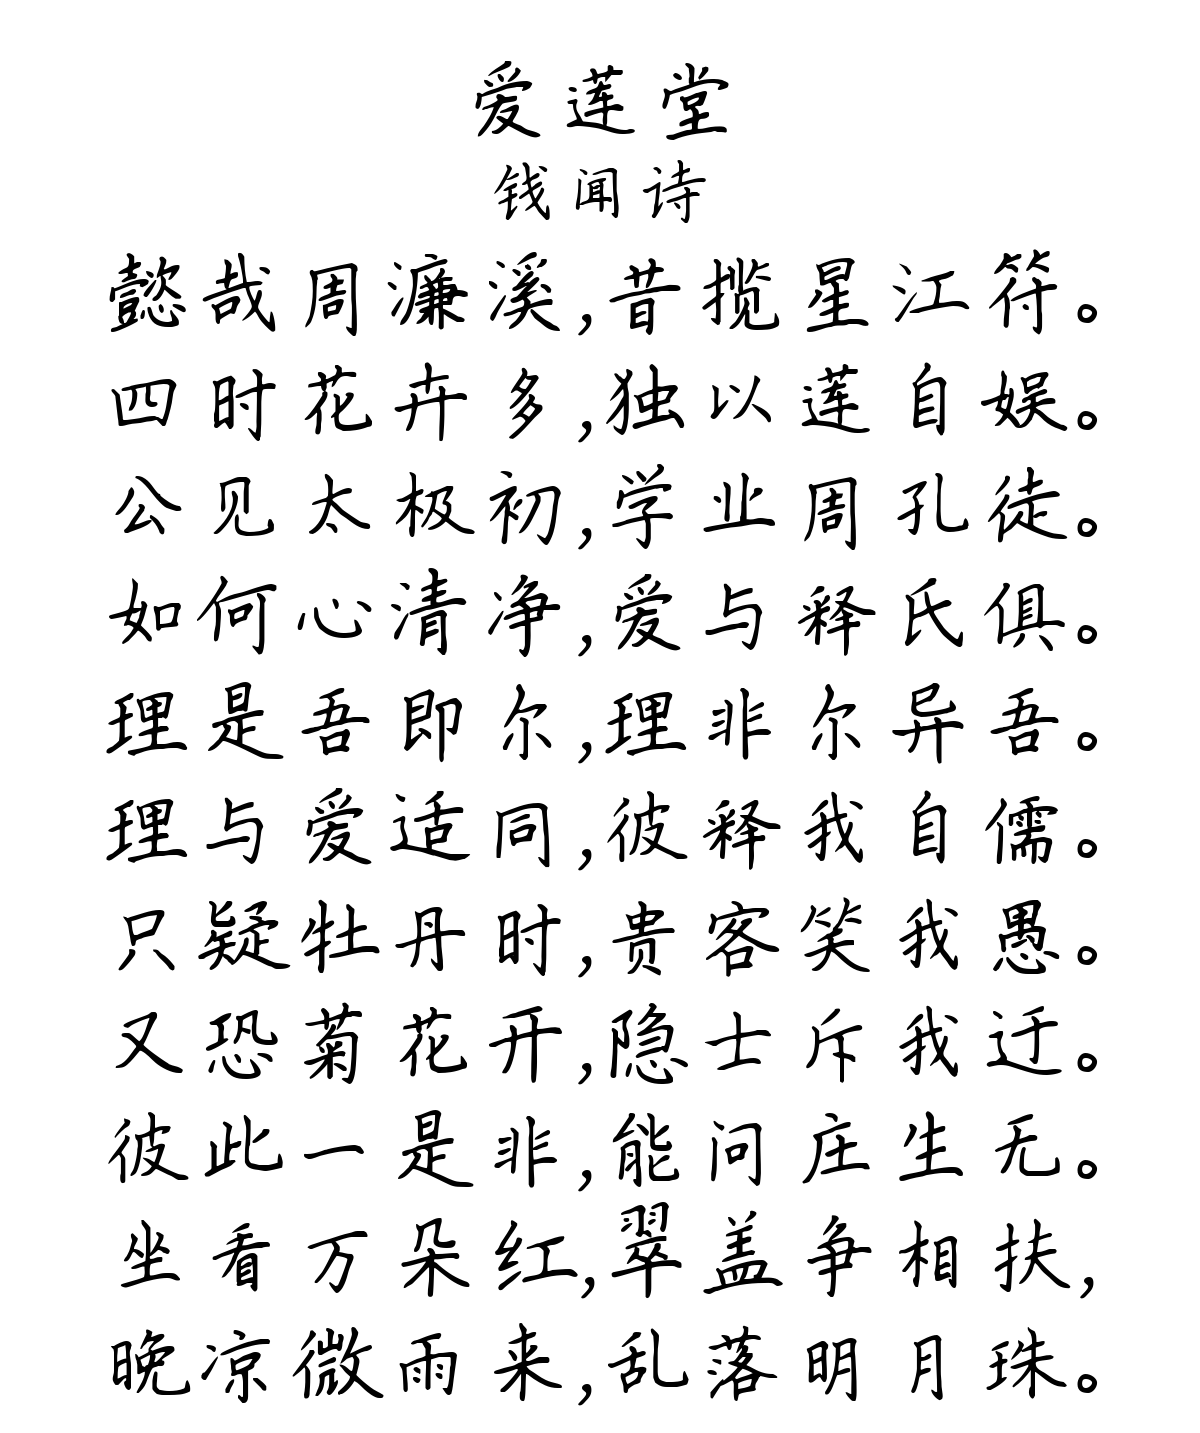 爱莲堂
钱闻诗
懿哉周濂溪,昔揽星江符。
四时花卉多,独以莲自娱。
公见太极初,学业周孔徒。
如何心清净,爱与释氏俱。
理是吾即尔,理非尔异吾。
理与爱适同,彼释我自儒。
只疑牡丹时,贵客笑我愚。
又恐菊花开,隐士斥我迂。
彼此一是非,能问庄生无。
坐看万朵红,翠盖争相扶,
晚凉微雨来,乱落明月珠。